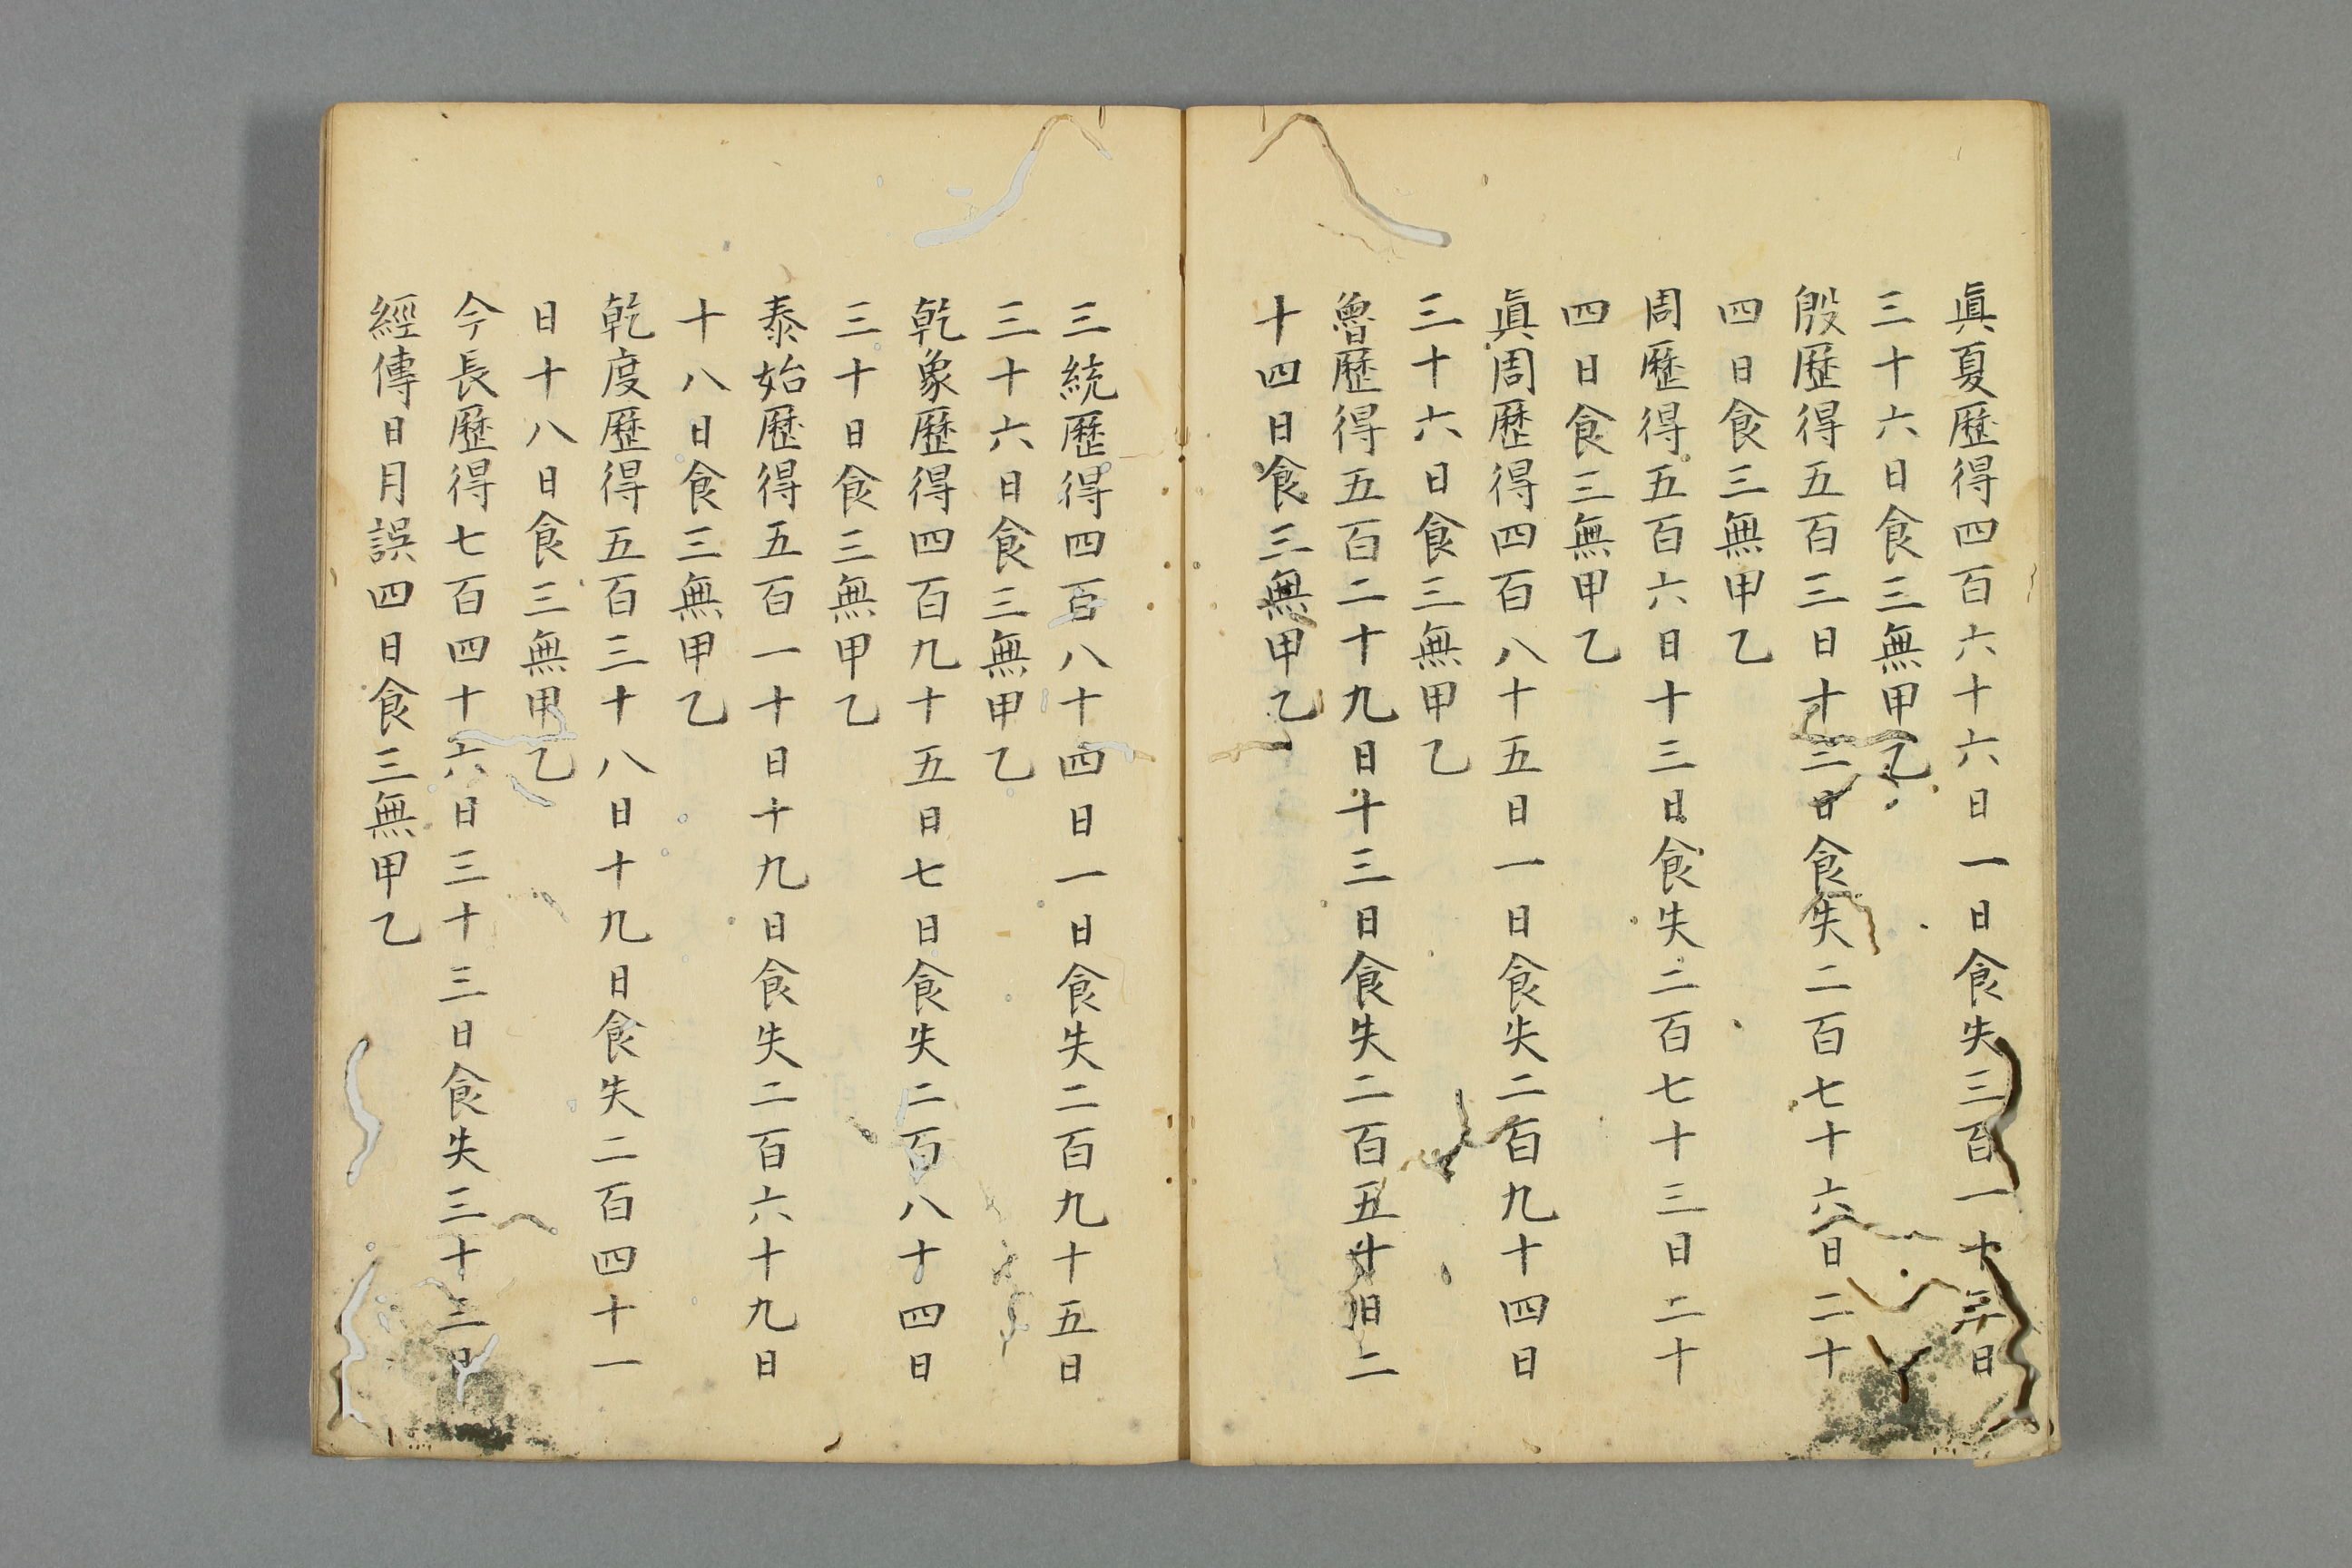 眞夏歷得四百六十六日一日食失三百一十三日
三十六日食三無甲乙
殷歷得五百三日十三日食失二百七十六日二十
四日食三無甲乙
周歷得五百六日十三日食失二百七十三日二十
四日食三無甲乙
眞周歷得四百八十五日一日食失二百九十四日
三十六日食三無甲乙
魯歷得五百二十九日十三日食失二百五十日二
十四日食三無甲乙
三統歷得四百八十四日一日食失二百九十五日
三十六日食三無甲乙
乾象歷得四百九十五日七日食失二百八十四日
三十日食三無甲乙
泰始歷得五百一十日十九日食失二百六十九日
十八日食三無甲乙
乾度歷得五百三十八日十九日食失二百四十一
日十八日食三無甲乙
今長歷得七百四十六日三十三日食失三十三日
經傳日月誤四日食三無甲乙